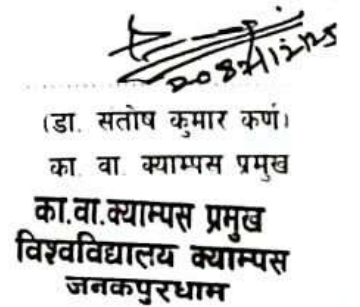 (डा. संतोष कुमार कर्ण)
का. वा. क्याम्पस प्रमुख
का.वा.क्याम्पस प्रमुख
विश्वविद्यालय क्याम्पस
जनकपुरधाम